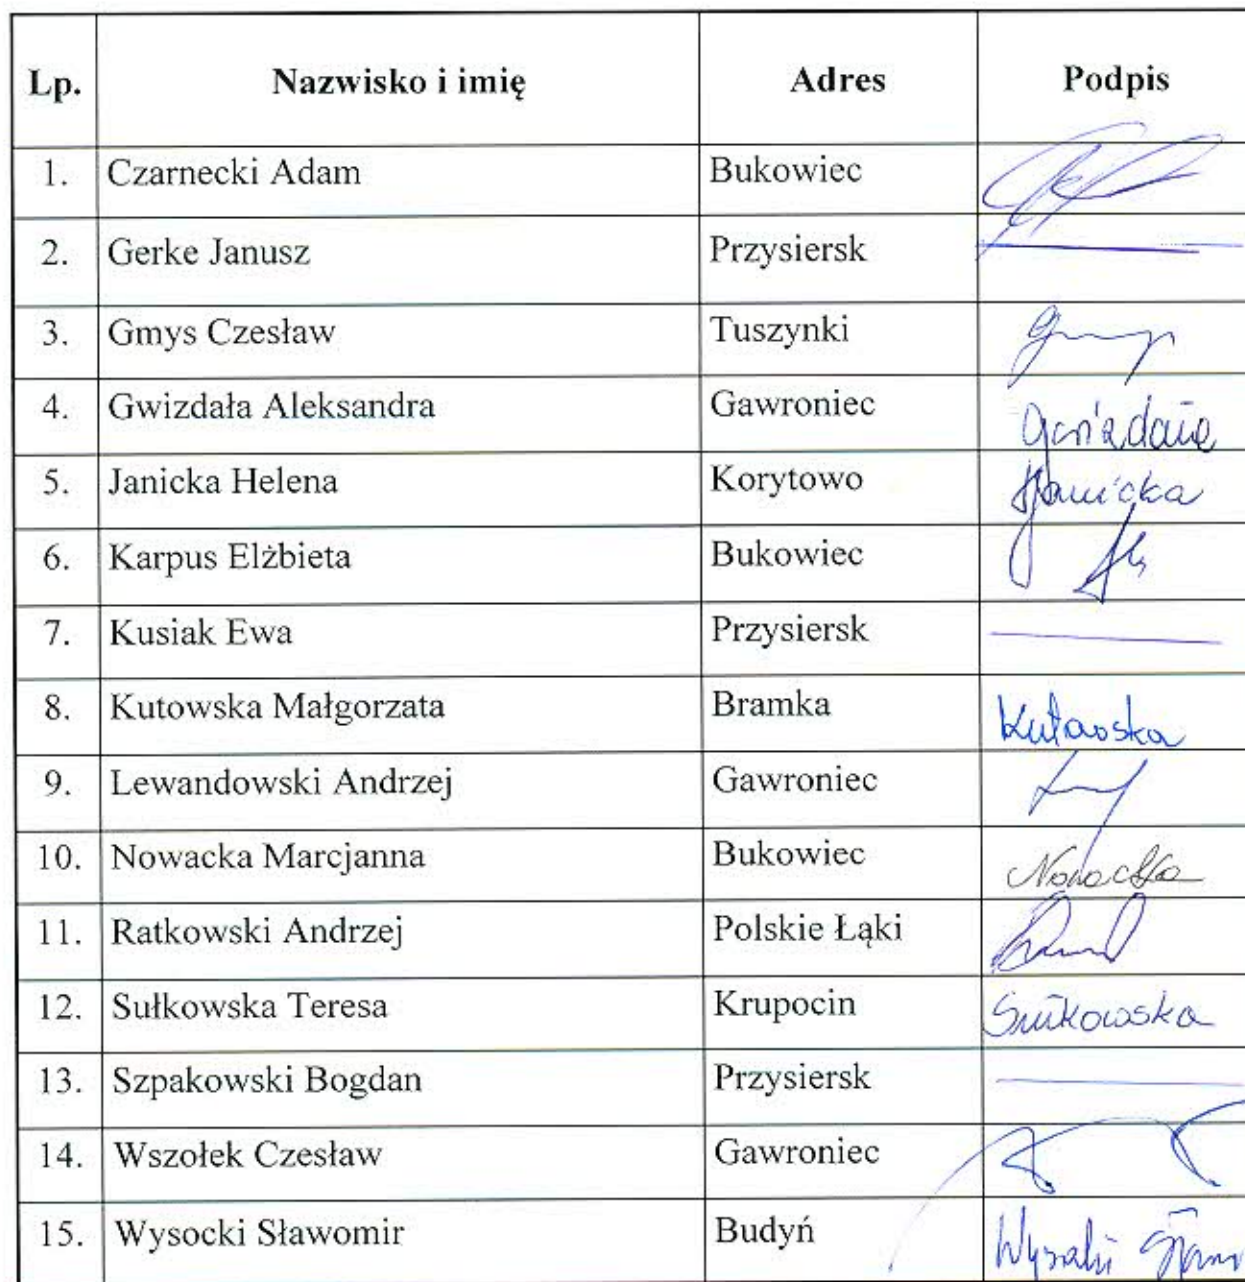 Lp. Nazwisko i imię Adres Podpis
1. Czarnecki Adam Bukowiec
2. Gerke Janusz Przysiersk
3. Gmys Czesław Tuszynki
4. Gwizdała Aleksandra Gawroniec
5. Janicka Helena Korytowo Janicka
6. Karpus Elżbieta Bukowiec
7. Kusiak Ewa Przysiersk
8. Kutowska Małgorzata Bramka Kutowska
9. Lewandowski Andrzej Gawroniec
10. Nowacka Marcjanna Bukowiec Nowacka
11. Ratkowski Andrzej Polskie Łąki
12. Sułkowska Teresa Krupocin Sułkowska
13. Szpakowski Bogdan Przysiersk
14. Wszołek Czesław Gawroniec
15. Wysocki Sławomir Budyń